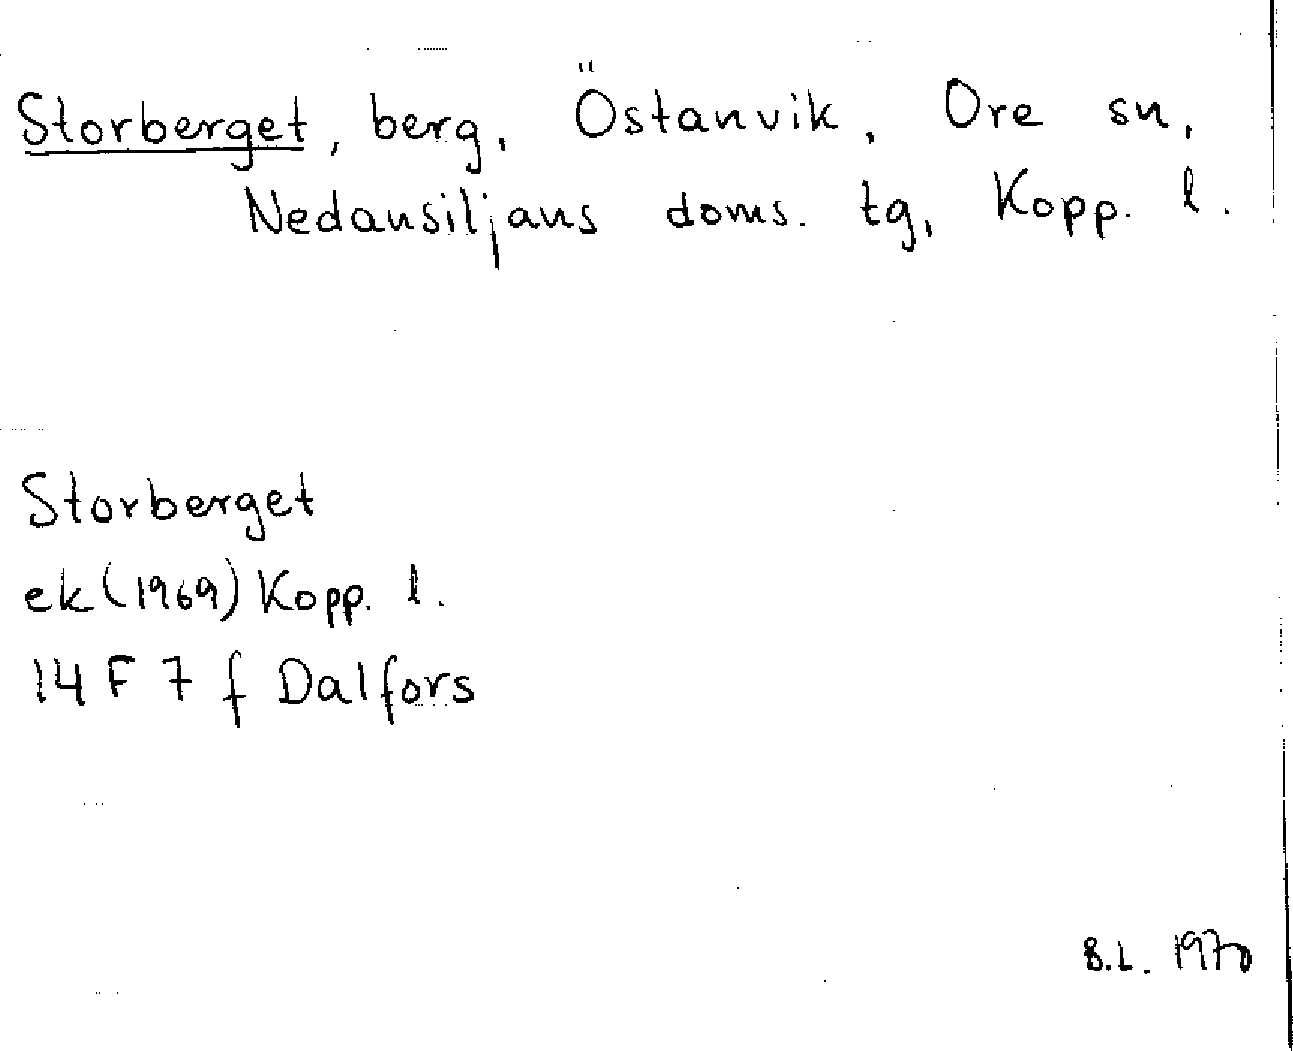 Storberget, berg, Östanvik, Ore sn,
Nedansiljans doms. tg, Kopp. l.
Storberget
ek (1969) Kopp. l.
14 F 7 f Dalfors
B.L. 1970